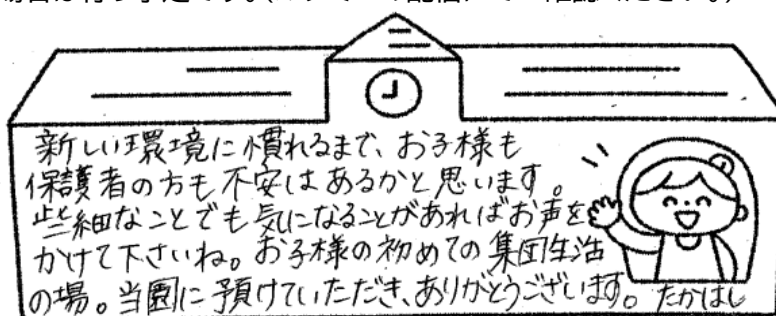 新しい環境に慣れるまで、お子様も
保護者の方も不安はあるかと思います。
些細なことでも気になることがあればお声を
かけて下さいね。お子様の初めての集団生活
の場。当園に預けていただき、ありがとうございます。たかはし